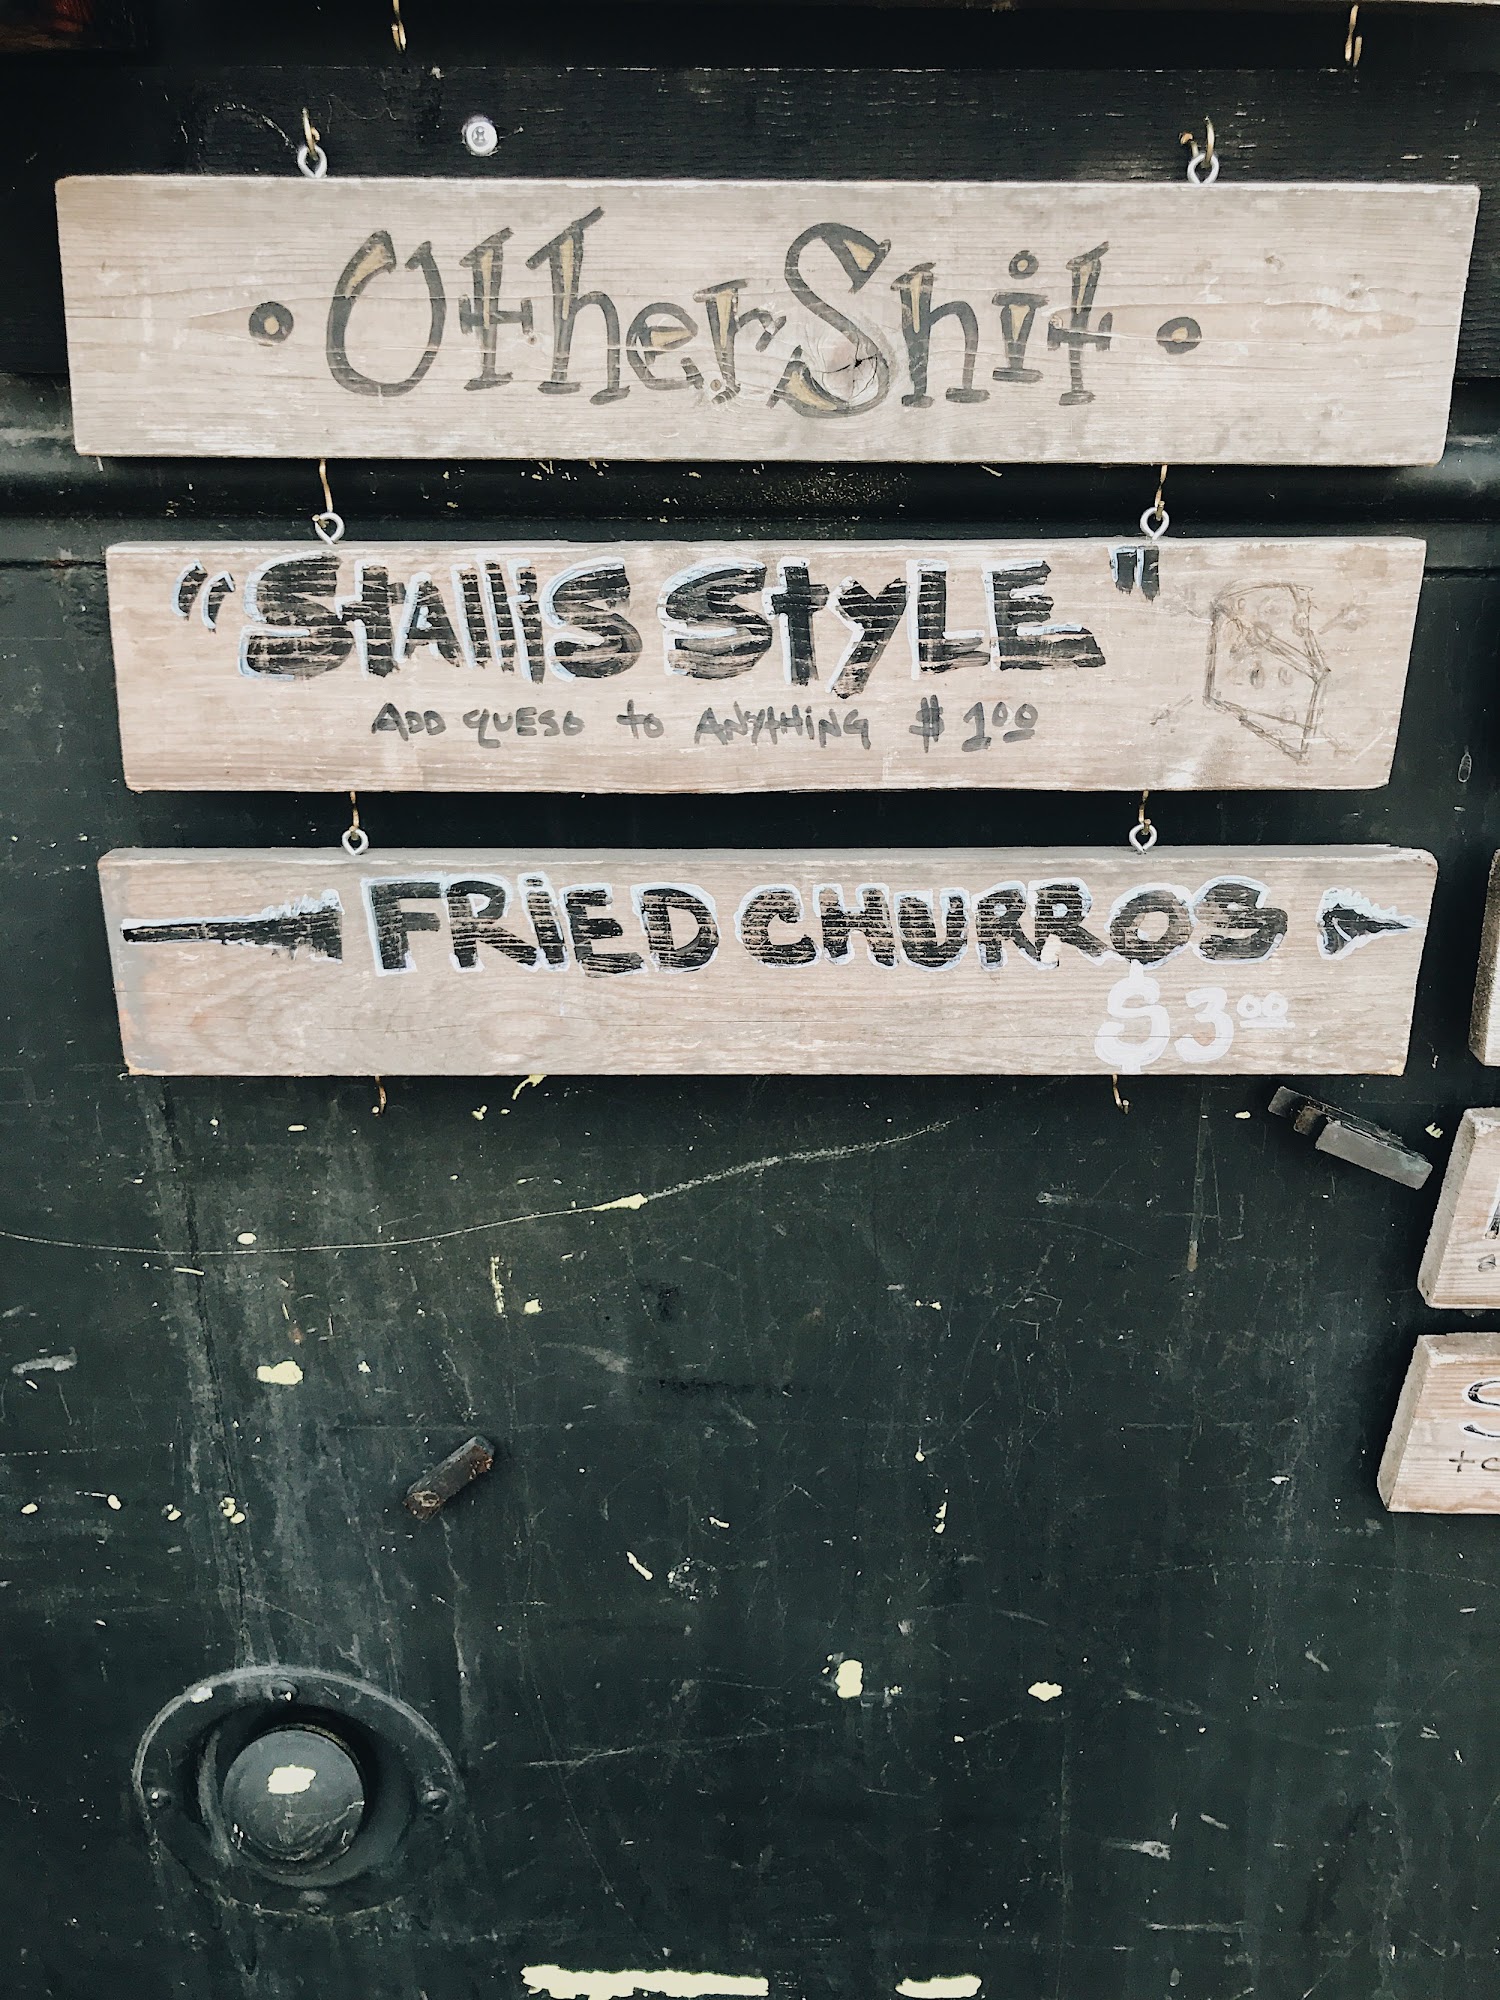 • Other Shit •
"Stallis Style"
ADD QUESO to ANYTHING $1.00
FRIED CHURROS
$3.00